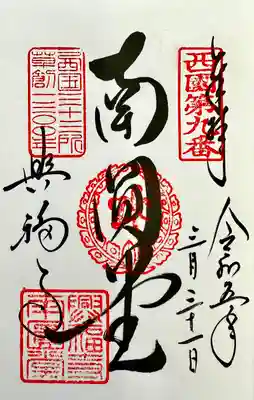 奉拝
西國第九番
令和五年
三月三十一日
南圓堂
西国三十三所
草創一三〇〇年
興福寺